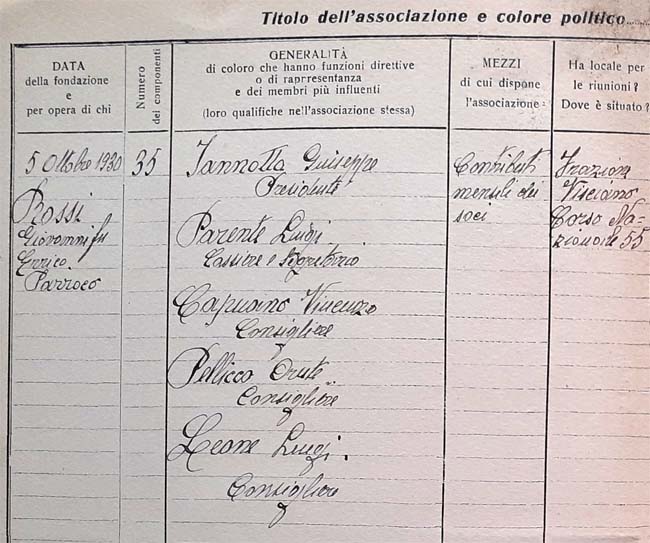 Titolo dell'associazione e colore politico
DATA
della fondazione
e
per opera di chi
Numero
dei componenti
GENERALITÀ
di coloro che hanno funzioni direttive
o di rappresentanza
e dei membri più influenti
(loro qualifiche nell'associazione stessa)
MEZZI
di cui dispone
l'associazione
Ha locale per
le riunioni?
Dove è situato?
5 Ottobre 1930
Rossi
Giovanni fu
Enrico
Parroco
35
Iannotta Giuseppe
Presidente
Parente Luigi
Cassiere e Segretario
Capuano Vincenzo
Consigliere
Pellicco Oreste
Consigliere
Leone Luigi
Consigliere
Contributi
mensili dei
soci
Frazione
Visciano
Corso Na-
zionale 55